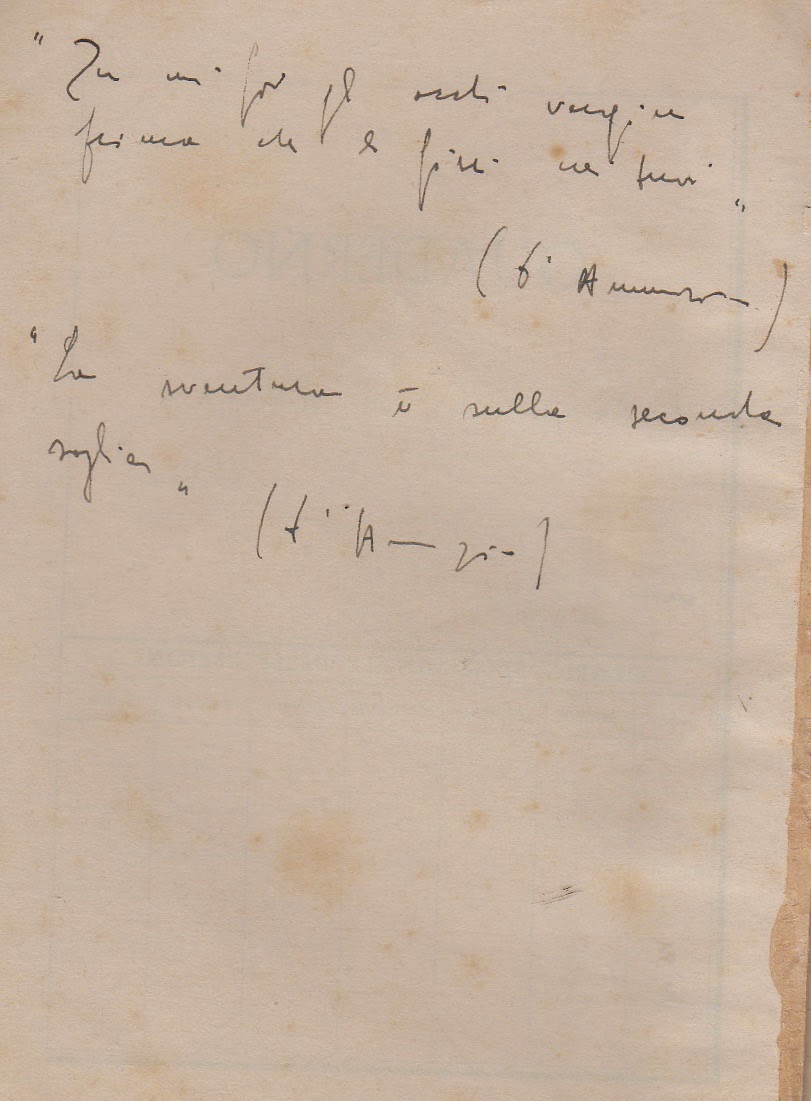 "Tu mi fai gl occhi vergini
prima che li fissi nei tuoi"
(d'Annunzio)
"La sventura è sulla seconda
soglia"
(d'Annunzio)